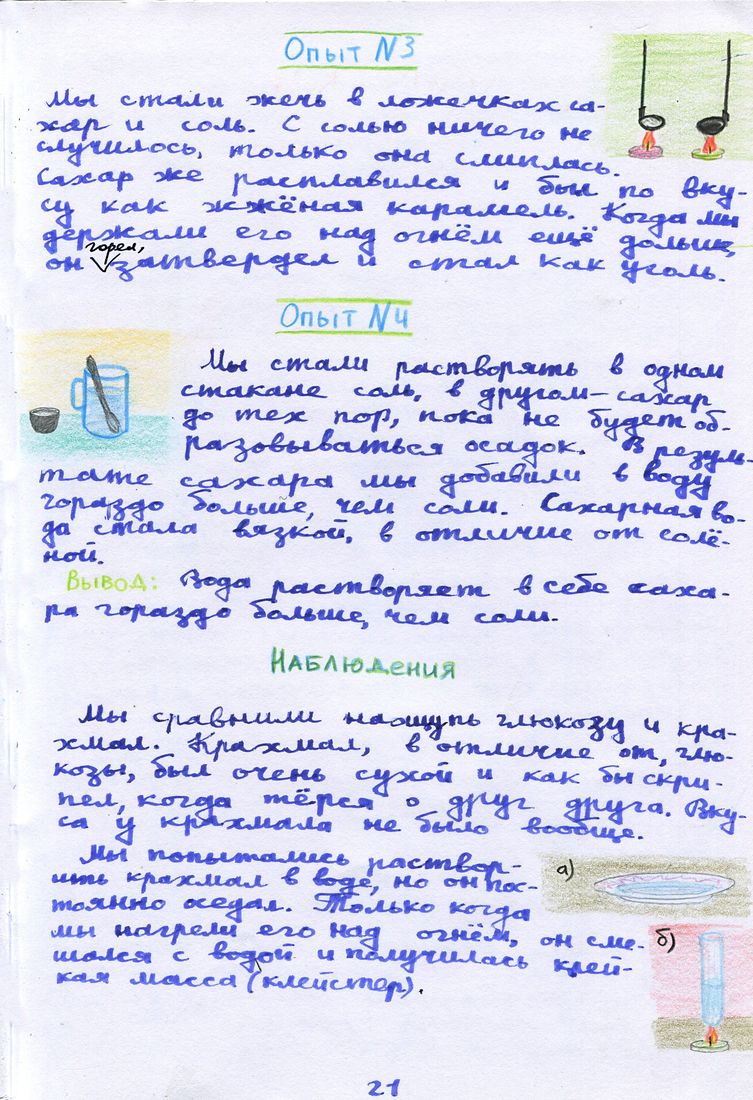 Опыт N3
Мы стали жечь в ложечках са-
хар и соль. С солью ничего не
случилось, только она слиплась.
Сахар же расплавился и был по вку-
су как жжёная карамель. Когда мы
держали его над огнём ещё дольше,
горел,
он затвердел и стал как уголь.
Опыт N4
Мы стали растворять в одном
стакане соль, в другом - сахар
до тех пор, пока не будет об-
разовываться осадок. В резуль-
тате сахара мы добавили в воду
гораздо больше, чем соли. Сахарная во-
да стала вязкой, в отличие от солё-
ной.
Вывод: Вода растворяет в себе саха-
ра гораздо больше, чем соли.
Наблюдения
Мы сравнили наощупь глюкозу и кра-
хмал. Крахмал, в отличие от, глю-
козы, был очень сухой и как бы скри-
пел, когда тёрся о друг друга. Вку-
са у крахмала не было вообще.
Мы попытались раствор-
ить крахмал в воде, но он пос-
тоянно оседал. Только когда
мы нагрели его над огнём, он сме-
шался с водой и получилась клей-
кая масса (клейстер).
а)
б)
21